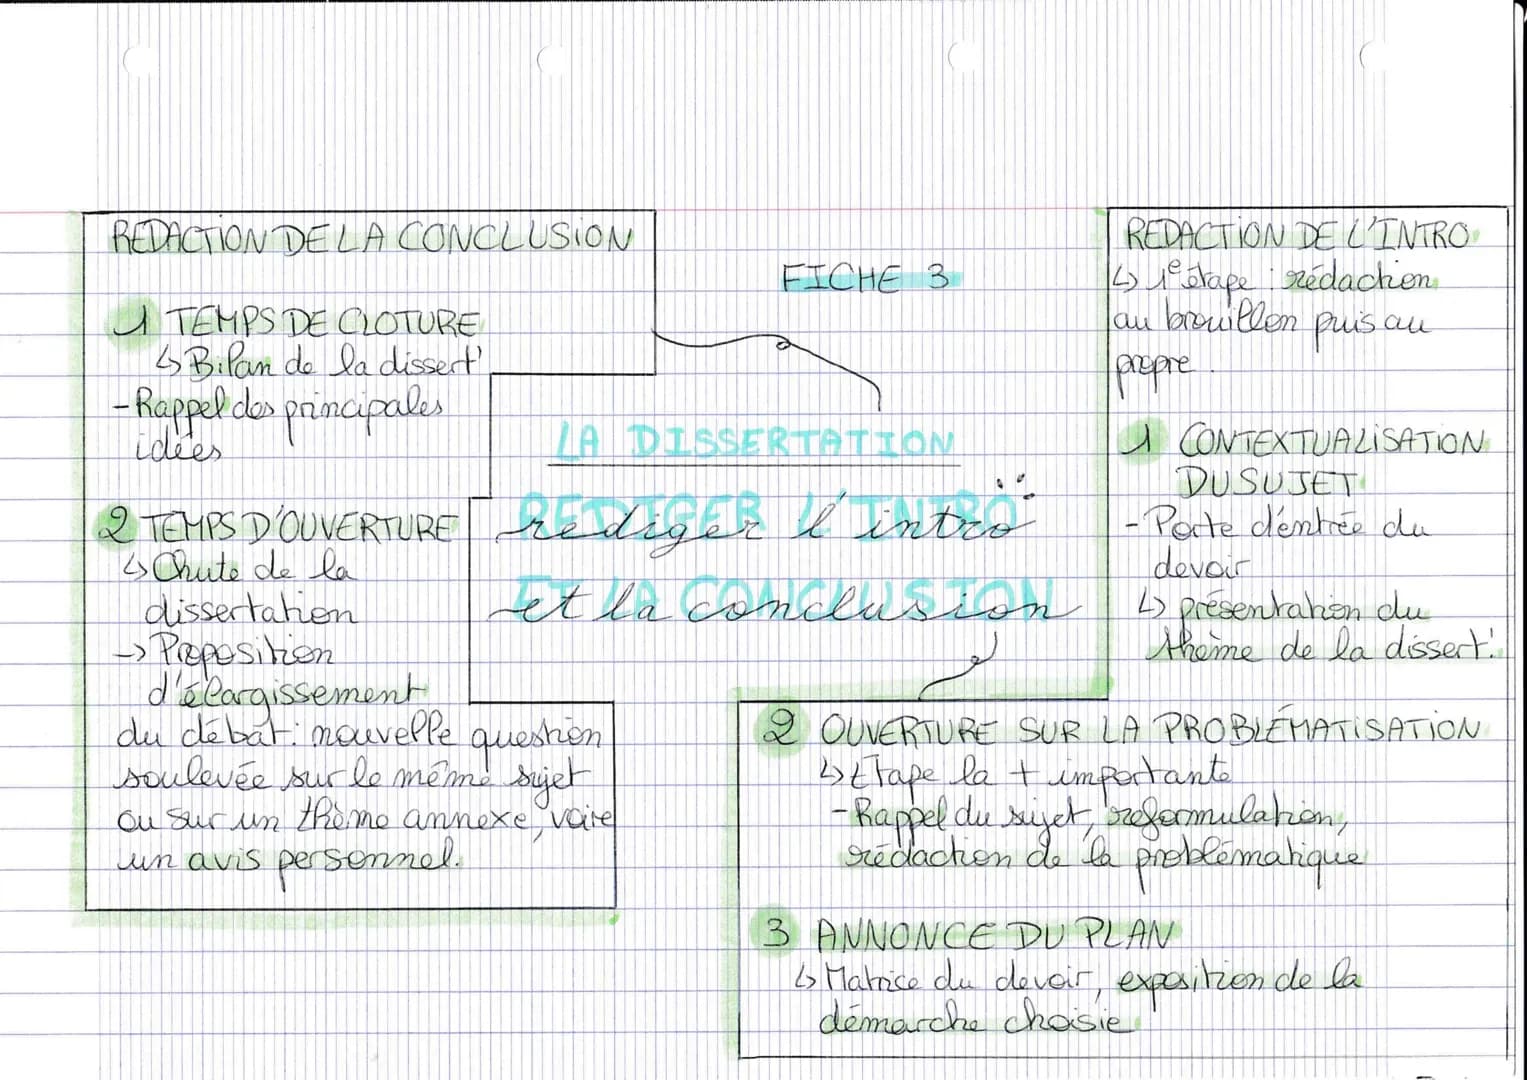 FICHE 3
LA DISSERTATION
REDIGER L'INTRO
rediger l'intro
ET LA CONCLUSION
et la conclusion
REDACTION DE L'INTRO
↳ 1e étape : rédaction
au brouillon puis au
propre.
1 CONTEXTUALISATION
DU SUJET
- Porte d'entrée du
devoir
↳ présentation du
thème de la dissert'.
2 OUVERTURE SUR LA PROBLÉMATISATION
↳ Etape la + importante
- Rappel du sujet, reformulation,
rédaction de la problématique
3 ANNONCE DU PLAN
↳ Matrice du devoir, exposition de la
démarche choisie
REDACTION DE LA CONCLUSION
1 TEMPS DE CLOTURE
↳ Bilan de la dissert'
- Rappel des principales
idées
2 TEMPS D'OUVERTURE
↳ Chute de la
dissertation
-> Proposition
d'élargissement
du débat : nouvelle question
soulevée sur le même sujet
ou sur un thème annexe, voire
un avis personnel.